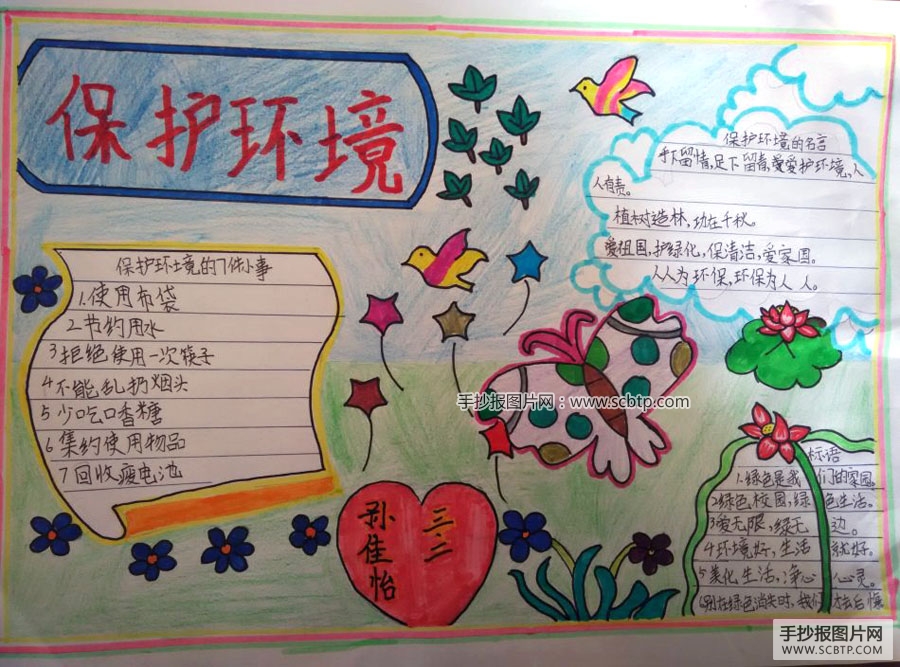 保护环境
保护环境的7件小事
1.使用布袋
2节约用水
3拒绝使用一次筷子
4不能乱扔烟头
5少吃口香糖
6集约使用物品
7回收废电池
保护环境的名言
手下留情,足下留青,爱护环境,人
人有责。
植树造林,功在千秋。
爱祖国,护绿化,保清洁,爱家园。
人人为环保,环保为人人。
手抄报图片网:www.scbtp.com
标语
1.绿色是我们的家园。
2绿色校园,绿色生活。
3爱无限,绿无边。
4环境好,生活就好。
5美化生活,净心心灵。
6别在绿色消失时,我们才去后悔
三.二
孙佳怡
手抄报图片网
WWW.SCBTP.COM